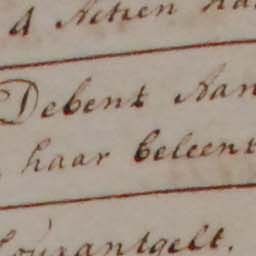 d Actien
Debent Aan
haar beleent
Courantgelt.